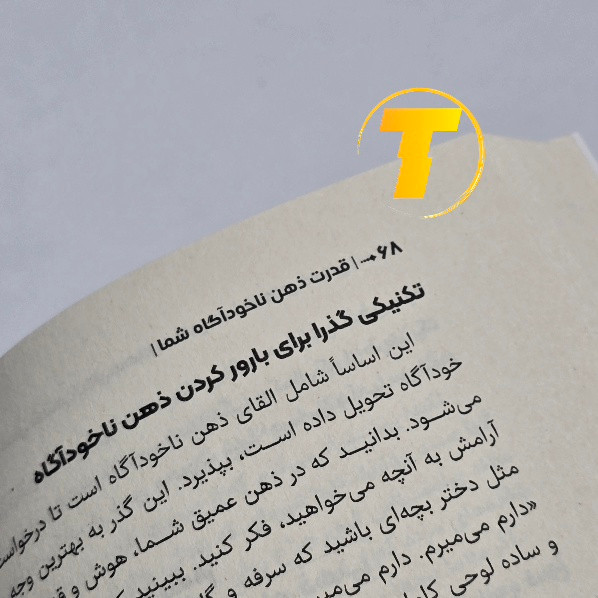 T
۶۸ | قدرت ذهن ناخودآگاه شما |
تکنیکی گذرا برای بارور کردن ذهن ناخودآگاه
این اساساً شامل القای ذهن ناخودآگاه است تا درخواست
خودآگاه تحویل داده است، بپذیرد. این گذر به بهترین وجه
می‌شود. بدانید که در ذهن عمیق شما، هوش و
آرامش به آنچه می‌خواهید، فکر کنید. ببینید
مثل دختر بچه‌ای باشید که سرفه و
«دارم می‌میرم. دارم
و ساده لوحی